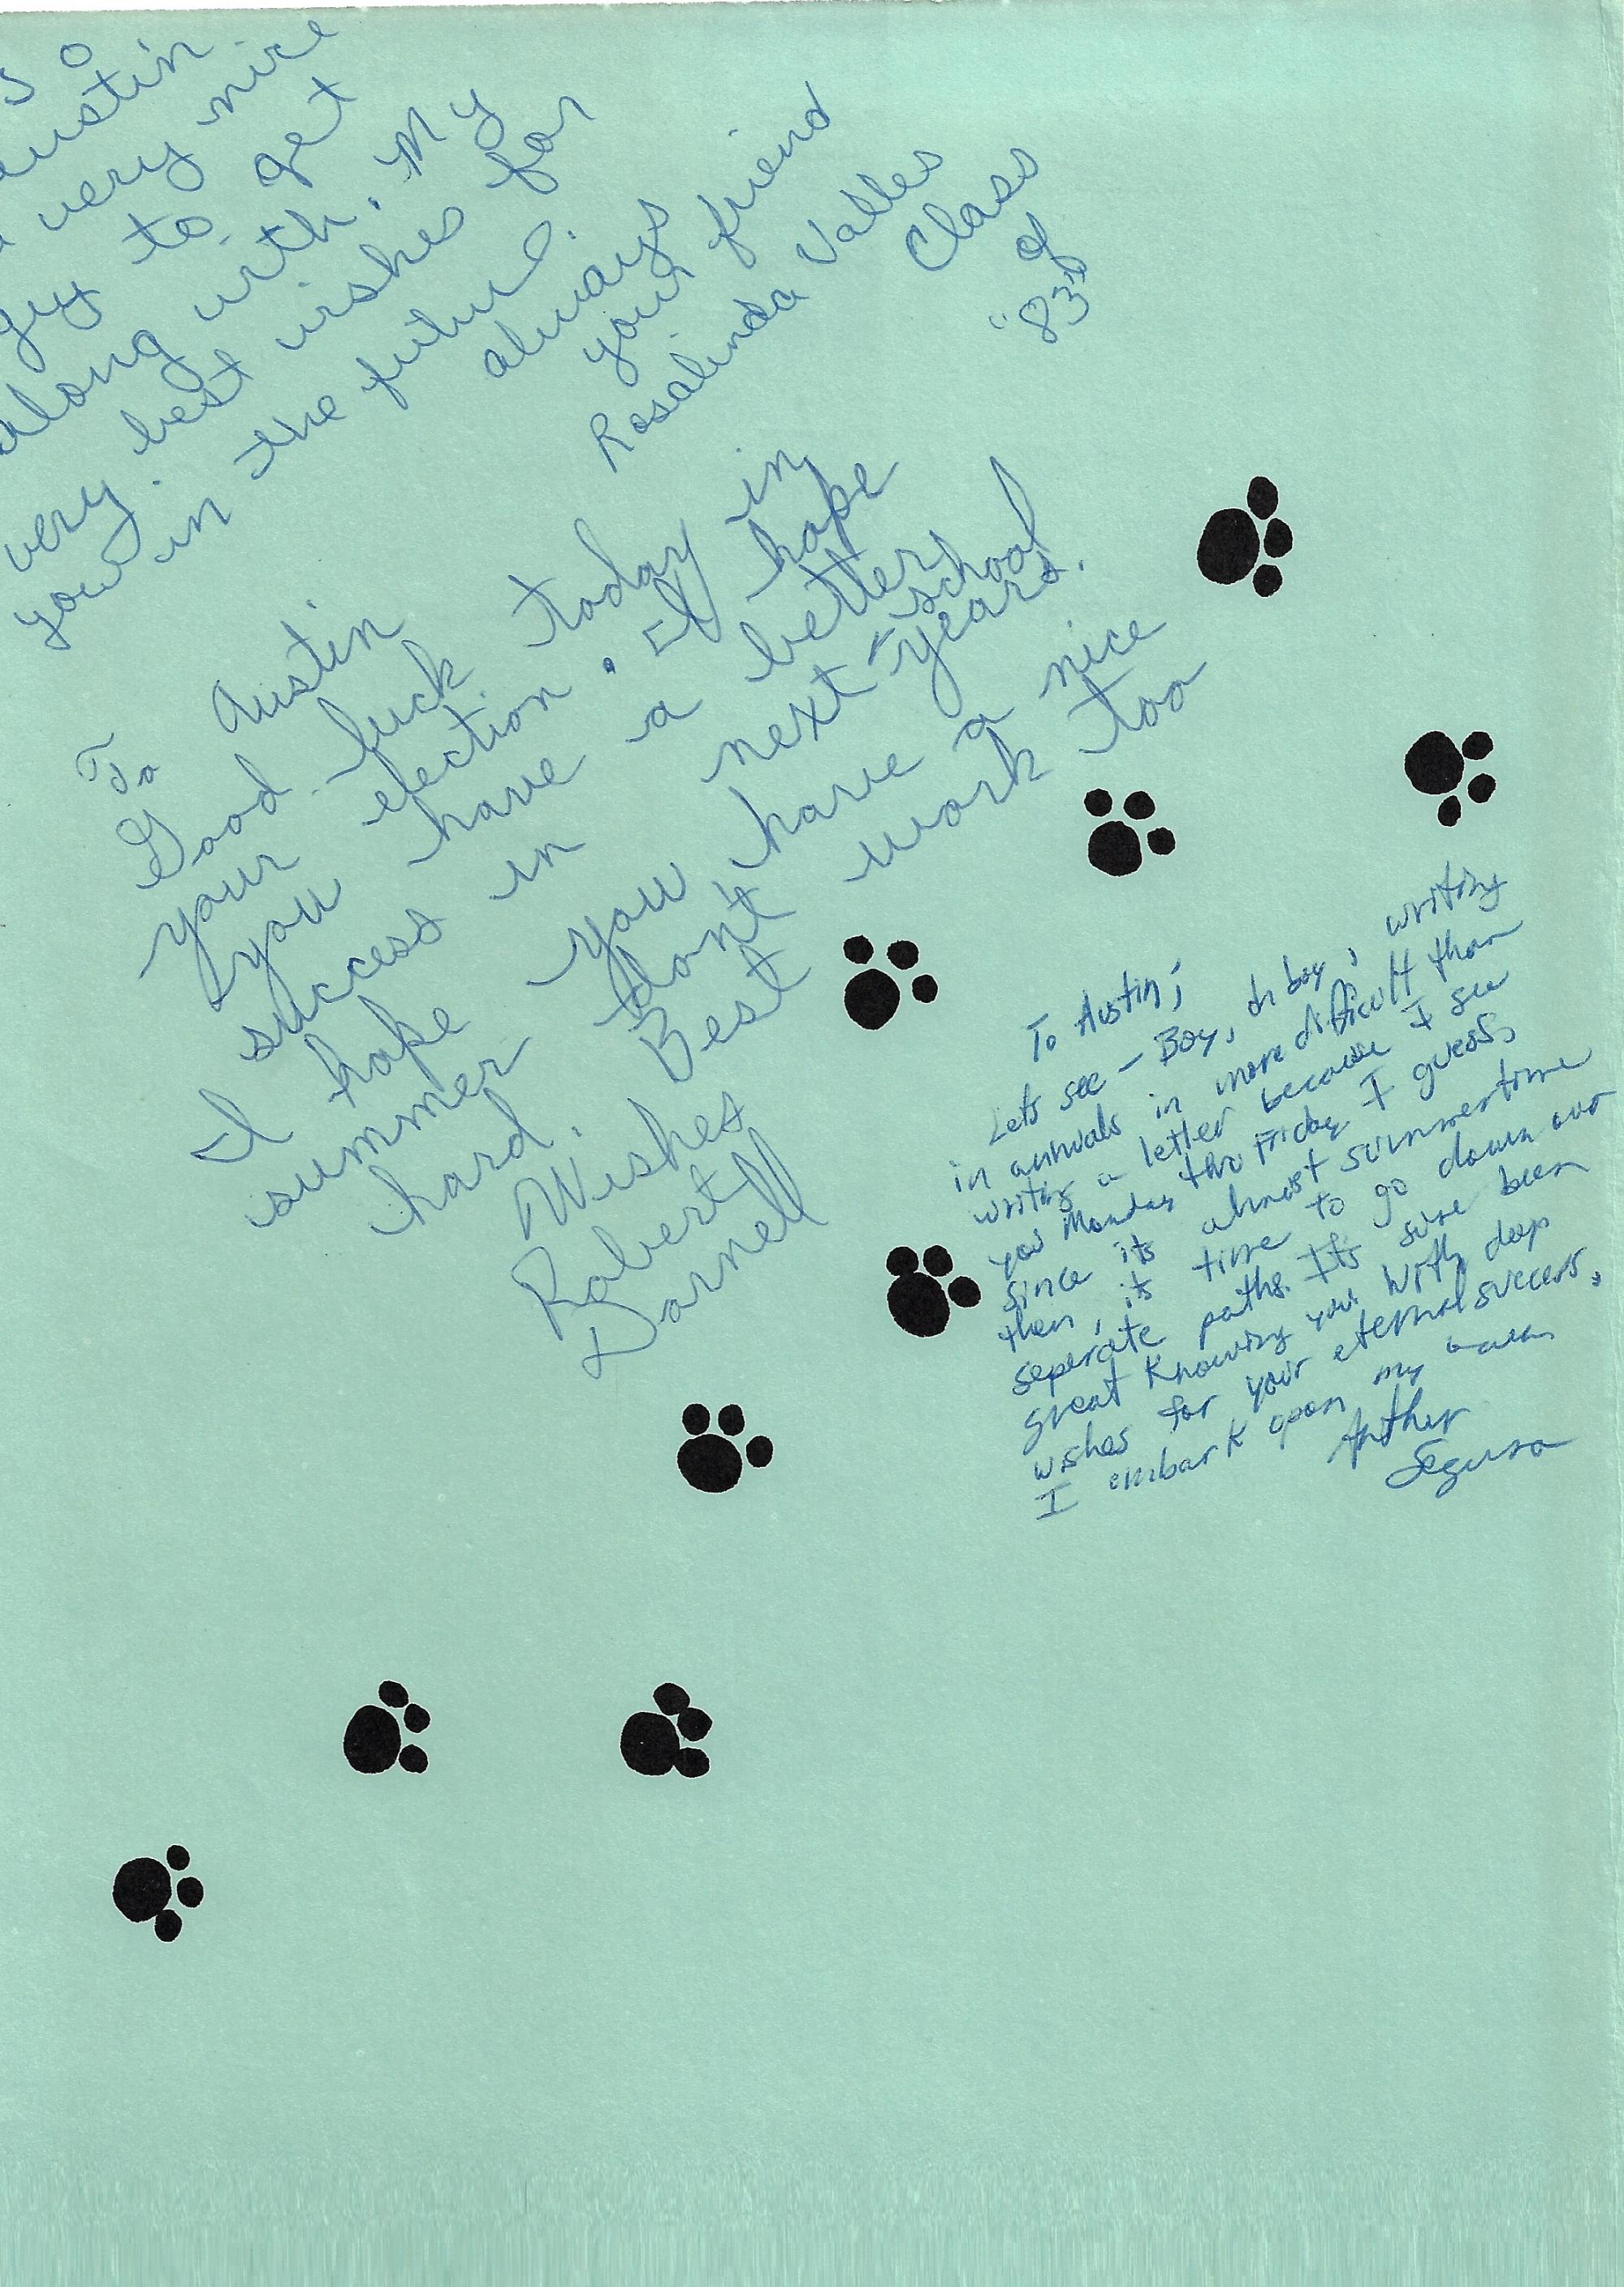 To
Austin
very nice
guy to get
along with. My
very best wishes for
you in the future.
always
your friend
Rosalinda Valles
Class
of
"83"
To Austin
Good luck today in
your election. I hope
you have a better
success in next school
years.
I hope you have a nice
summer dont work too
hard. Best
Wishes
Robert
Darnell
To Austin;
Lets see - Boy, oh boy, writing
in annuals in more difficult than
writing a letter because I see
you Monday thro Friday I guess,
since its almost summertime
then, its time to go down our
seperate paths. Its sure been
great knowing you. With deep
wishes for your eternal success,
I embark upon my
Arther
Segura